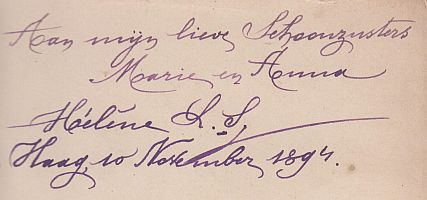 Aan mijn lieve Schoonzusters
Marie en Anna
Hélène L. S,
Haag, 10 November 1894.